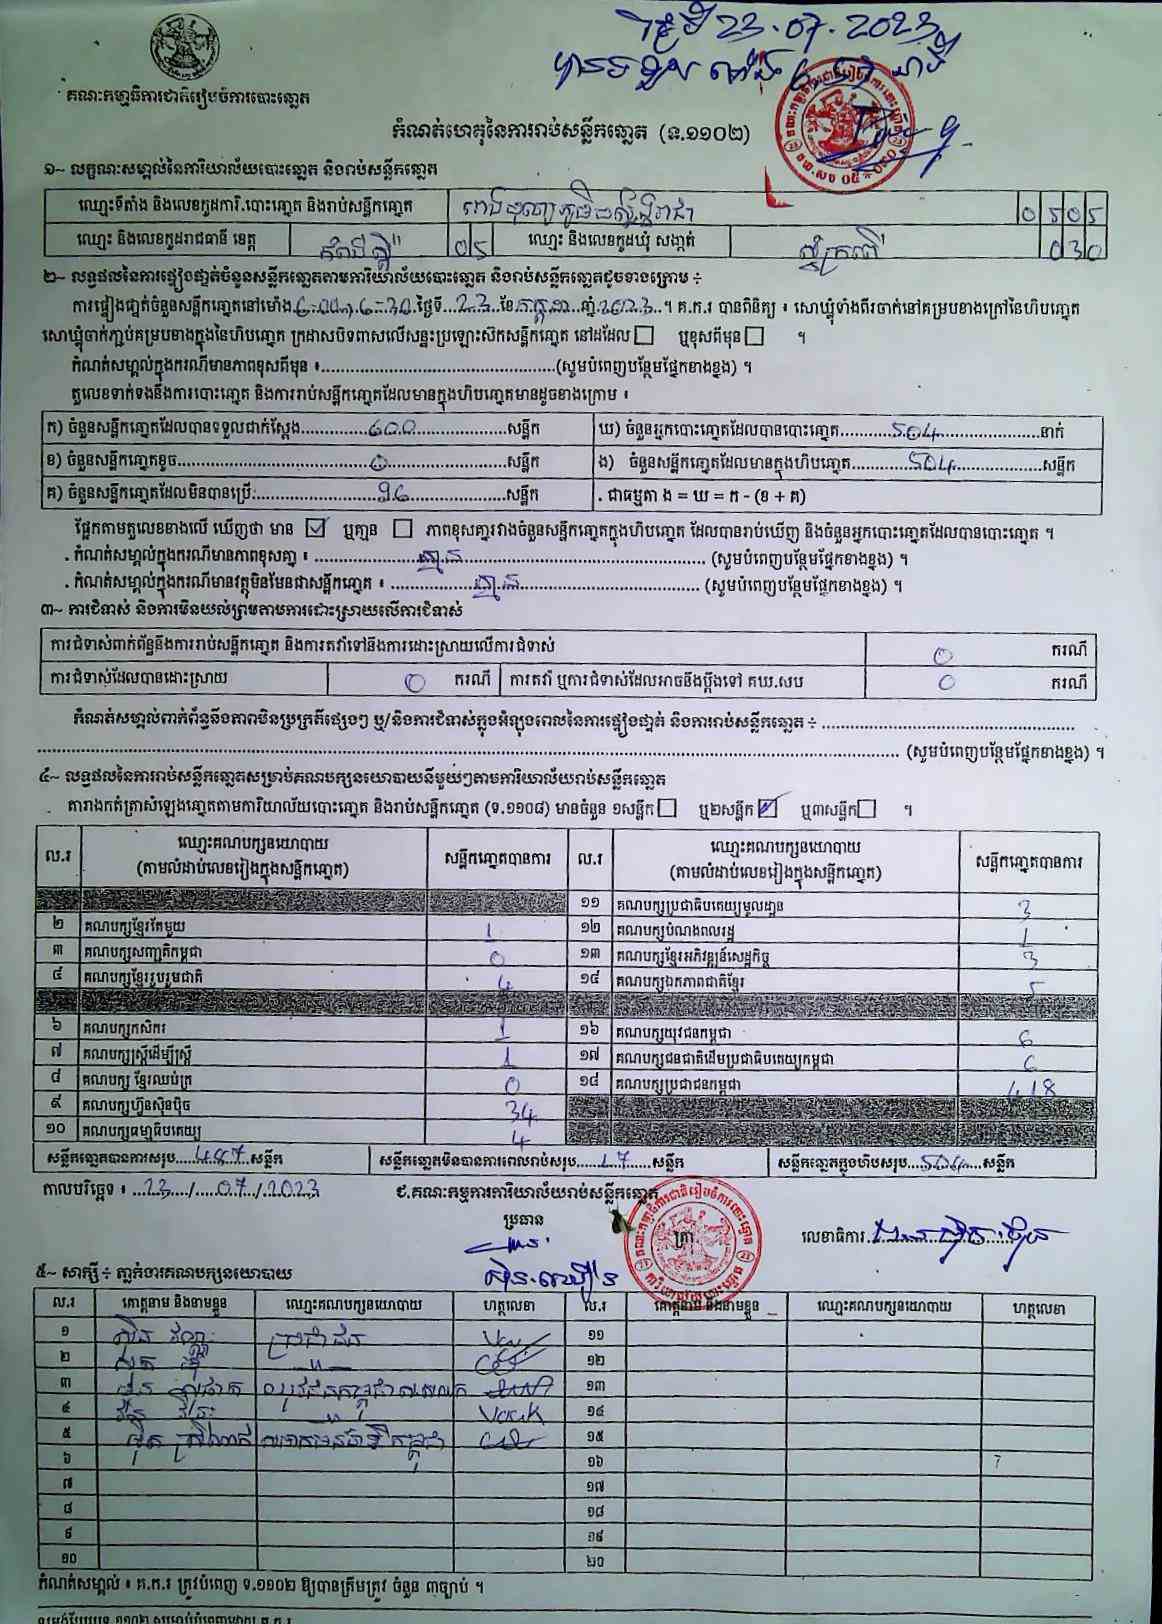 ថ្ងៃទី 23.07.2023
គណៈកម្មាធិការជាតិរៀបចំការបោះឆ្នោត
កំណត់ហេតុនៃការរាប់សន្លឹកឆ្នោត (ទ.១១០២)
១~ លក្ខណៈសម្គាល់នៃការិយាល័យបោះឆ្នោត និងរាប់សន្លឹកឆ្នោត
ឈ្មោះទីតាំង និងលេខកូដការិ.បោះឆ្នោត និងរាប់សន្លឹកឆ្នោត 0 5 0 5
ឈ្មោះ និងលេខកូដរាជធានី ខេត្ត កំពង់ស្ពឺ 0 5 ឈ្មោះ និងលេខកូដឃុំ សង្កាត់ 0 3 0
២~ លទ្ធផលនៃការផ្ទៀងផ្ទាត់ចំនួនសន្លឹកឆ្នោតតាមការិយាល័យបោះឆ្នោត និងរាប់សន្លឹកឆ្នោតដូចខាងក្រោម ÷
ការផ្ទៀងផ្ទាត់ចំនួនសន្លឹកឆ្នោតនៅម៉ោង ថ្ងៃទី 23 ខែ កក្កដា ឆ្នាំ 2023 ។ គ.ក.រ បានពិនិត្យ ៖ សោឃ្នុំទាំងពីរចាក់នៅគម្របខាងក្រៅនៃហិបឆ្នោត
សោឃ្នុំចាក់ភ្ជាប់គម្របខាងក្នុងនៃហិបឆ្នោត ក្រដាសបិទពាសលើសន្ទះប្រឡោះស៊កសន្លឹកឆ្នោត នៅដដែល ឬខុសពីមុន ។
កំណត់សម្គាល់ក្នុងករណីមានភាពខុសពីមុន ៖ (សូមបំពេញបន្ថែមផ្នែកខាងខ្នង) ។
តួលេខទាក់ទងនឹងការបោះឆ្នោត និងការរាប់សន្លឹកឆ្នោតដែលមានក្នុងហិបឆ្នោតមានដូចខាងក្រោម ៖
ក) ចំនួនសន្លឹកឆ្នោតដែលបានទទួលជាក់ស្តែង 600 សន្លឹក ឃ) ចំនួនអ្នកបោះឆ្នោតដែលបានបោះឆ្នោត 504 នាក់
ខ) ចំនួនសន្លឹកឆ្នោតខូច 0 សន្លឹក ង) ចំនួនសន្លឹកឆ្នោតដែលមានក្នុងហិបឆ្នោត 504 សន្លឹក
គ) ចំនួនសន្លឹកឆ្នោតដែលមិនបានប្រើ 96 សន្លឹក . ជាធម្មតា ង = ឃ = ក - (ខ + គ)
ផ្អែកតាមតួលេខខាងលើ ឃើញថា មាន ឬគ្មាន ភាពខុសគ្នារវាងចំនួនសន្លឹកឆ្នោតក្នុងហិបឆ្នោត ដែលបានរាប់ឃើញ និងចំនួនអ្នកបោះឆ្នោតដែលបានបោះឆ្នោត ។
. កំណត់សម្គាល់ក្នុងករណីមានភាពខុសគ្នា ៖ គ្មាន (សូមបំពេញបន្ថែមផ្នែកខាងខ្នង) ។
. កំណត់សម្គាល់ក្នុងករណីមានវត្ថុមិនមែនជាសន្លឹកឆ្នោត ៖ គ្មាន (សូមបំពេញបន្ថែមផ្នែកខាងខ្នង) ។
៣~ ការជំទាស់ និងការមិនយល់ព្រមតាមការដោះស្រាយលើការជំទាស់
ការជំទាស់ពាក់ព័ន្ធនឹងការរាប់សន្លឹកឆ្នោត និងការតវ៉ាទៅនឹងការដោះស្រាយលើការជំទាស់ 0 ករណី
ការជំទាស់ដែលបានដោះស្រាយ 0 ករណី ការតវ៉ា ឬការជំទាស់ដែលអាចនឹងប្តឹងទៅ គឃ.សប 0 ករណី
កំណត់សម្គាល់ពាក់ព័ន្ធនឹងភាពមិនប្រក្រតីផ្សេងៗ ឬ/និងការជំទាស់ក្នុងអំឡុងពេលនៃការផ្ទៀងផ្ទាត់ និងការរាប់សន្លឹកឆ្នោត ÷
(សូមបំពេញបន្ថែមផ្នែកខាងខ្នង) ។
៤~ លទ្ធផលនៃការរាប់សន្លឹកឆ្នោតសម្រាប់គណបក្សនយោបាយនីមួយៗតាមការិយាល័យរាប់សន្លឹកឆ្នោត
តារាងកត់ត្រាសំឡេងឆ្នោតតាមការិយាល័យបោះឆ្នោត និងរាប់សន្លឹកឆ្នោត (ទ.១១០៨) មានចំនួន ១សន្លឹក ឬ២សន្លឹក ឬ៣សន្លឹក ។
ល.រ ឈ្មោះគណបក្សនយោបាយ (តាមលំដាប់លេខរៀងក្នុងសន្លឹកឆ្នោត) សន្លឹកឆ្នោតបានការ ល.រ ឈ្មោះគណបក្សនយោបាយ (តាមលំដាប់លេខរៀងក្នុងសន្លឹកឆ្នោត) សន្លឹកឆ្នោតបានការ
១១ គណបក្សប្រជាធិបតេយ្យមូលដ្ឋាន 3
២ គណបក្សខ្មែរតែមួយ 1 ១២ គណបក្សបំណងពលរដ្ឋ 1
៣ គណបក្សសញ្ជាតិកម្ពុជា 0 ១៣ គណបក្សខ្មែរអភិវឌ្ឍន៍សេដ្ឋកិច្ច 3
៤ គណបក្សខ្មែររួបរួមជាតិ 4 ១៤ គណបក្សឯកភាពជាតិខ្មែរ 5
៦ គណបក្សកសិករ 1 ១៦ គណបក្សយុវជនកម្ពុជា 6
៧ គណបក្សស្ត្រីដើម្បីស្ត្រី 1 ១៧ គណបក្សជនជាតិដើមប្រជាធិបតេយ្យកម្ពុជា
៨ គណបក្ស ខ្មែរឈប់ក្រ 0 ១៨ គណបក្សប្រជាជនកម្ពុជា 418
៩ គណបក្សហ្វ៊ុនស៊ិនប៉ិច 34
១០ គណបក្សធម្មាធិបតេយ្យ 4
សន្លឹកឆ្នោតបានការសរុប 487 សន្លឹក សន្លឹកឆ្នោតមិនបានការពេលរាប់សរុប 17 សន្លឹក សន្លឹកឆ្នោតក្នុងហិបសរុប 504 សន្លឹក
កាលបរិច្ឆេទ ៖ 23/07/2023 ជ.គណៈកម្មការការិយាល័យរាប់សន្លឹកឆ្នោត
ប្រធាន ត្រា លេខាធិការ
៥~ សាក្សី ÷ ភ្នាក់ងារគណបក្សនយោបាយ
ល.រ គោត្តនាម និងនាមខ្លួន ឈ្មោះគណបក្សនយោបាយ ហត្ថលេខា ល.រ គោត្តនាម និងនាមខ្លួន ឈ្មោះគណបក្សនយោបាយ ហត្ថលេខា
១ ប្រជាជន ១១
២ ១២
៣ ១៣
៤ ១៤
៥ ១៥
៦ ១៦
៧ ១៧
៨ ១៨
៩ ១៩
១០ ២០
កំណត់សម្គាល់ ៖ គ.ក.រ ត្រូវបំពេញ ទ.១១០២ ឱ្យបានត្រឹមត្រូវ ចំនួន ៣ច្បាប់ ។